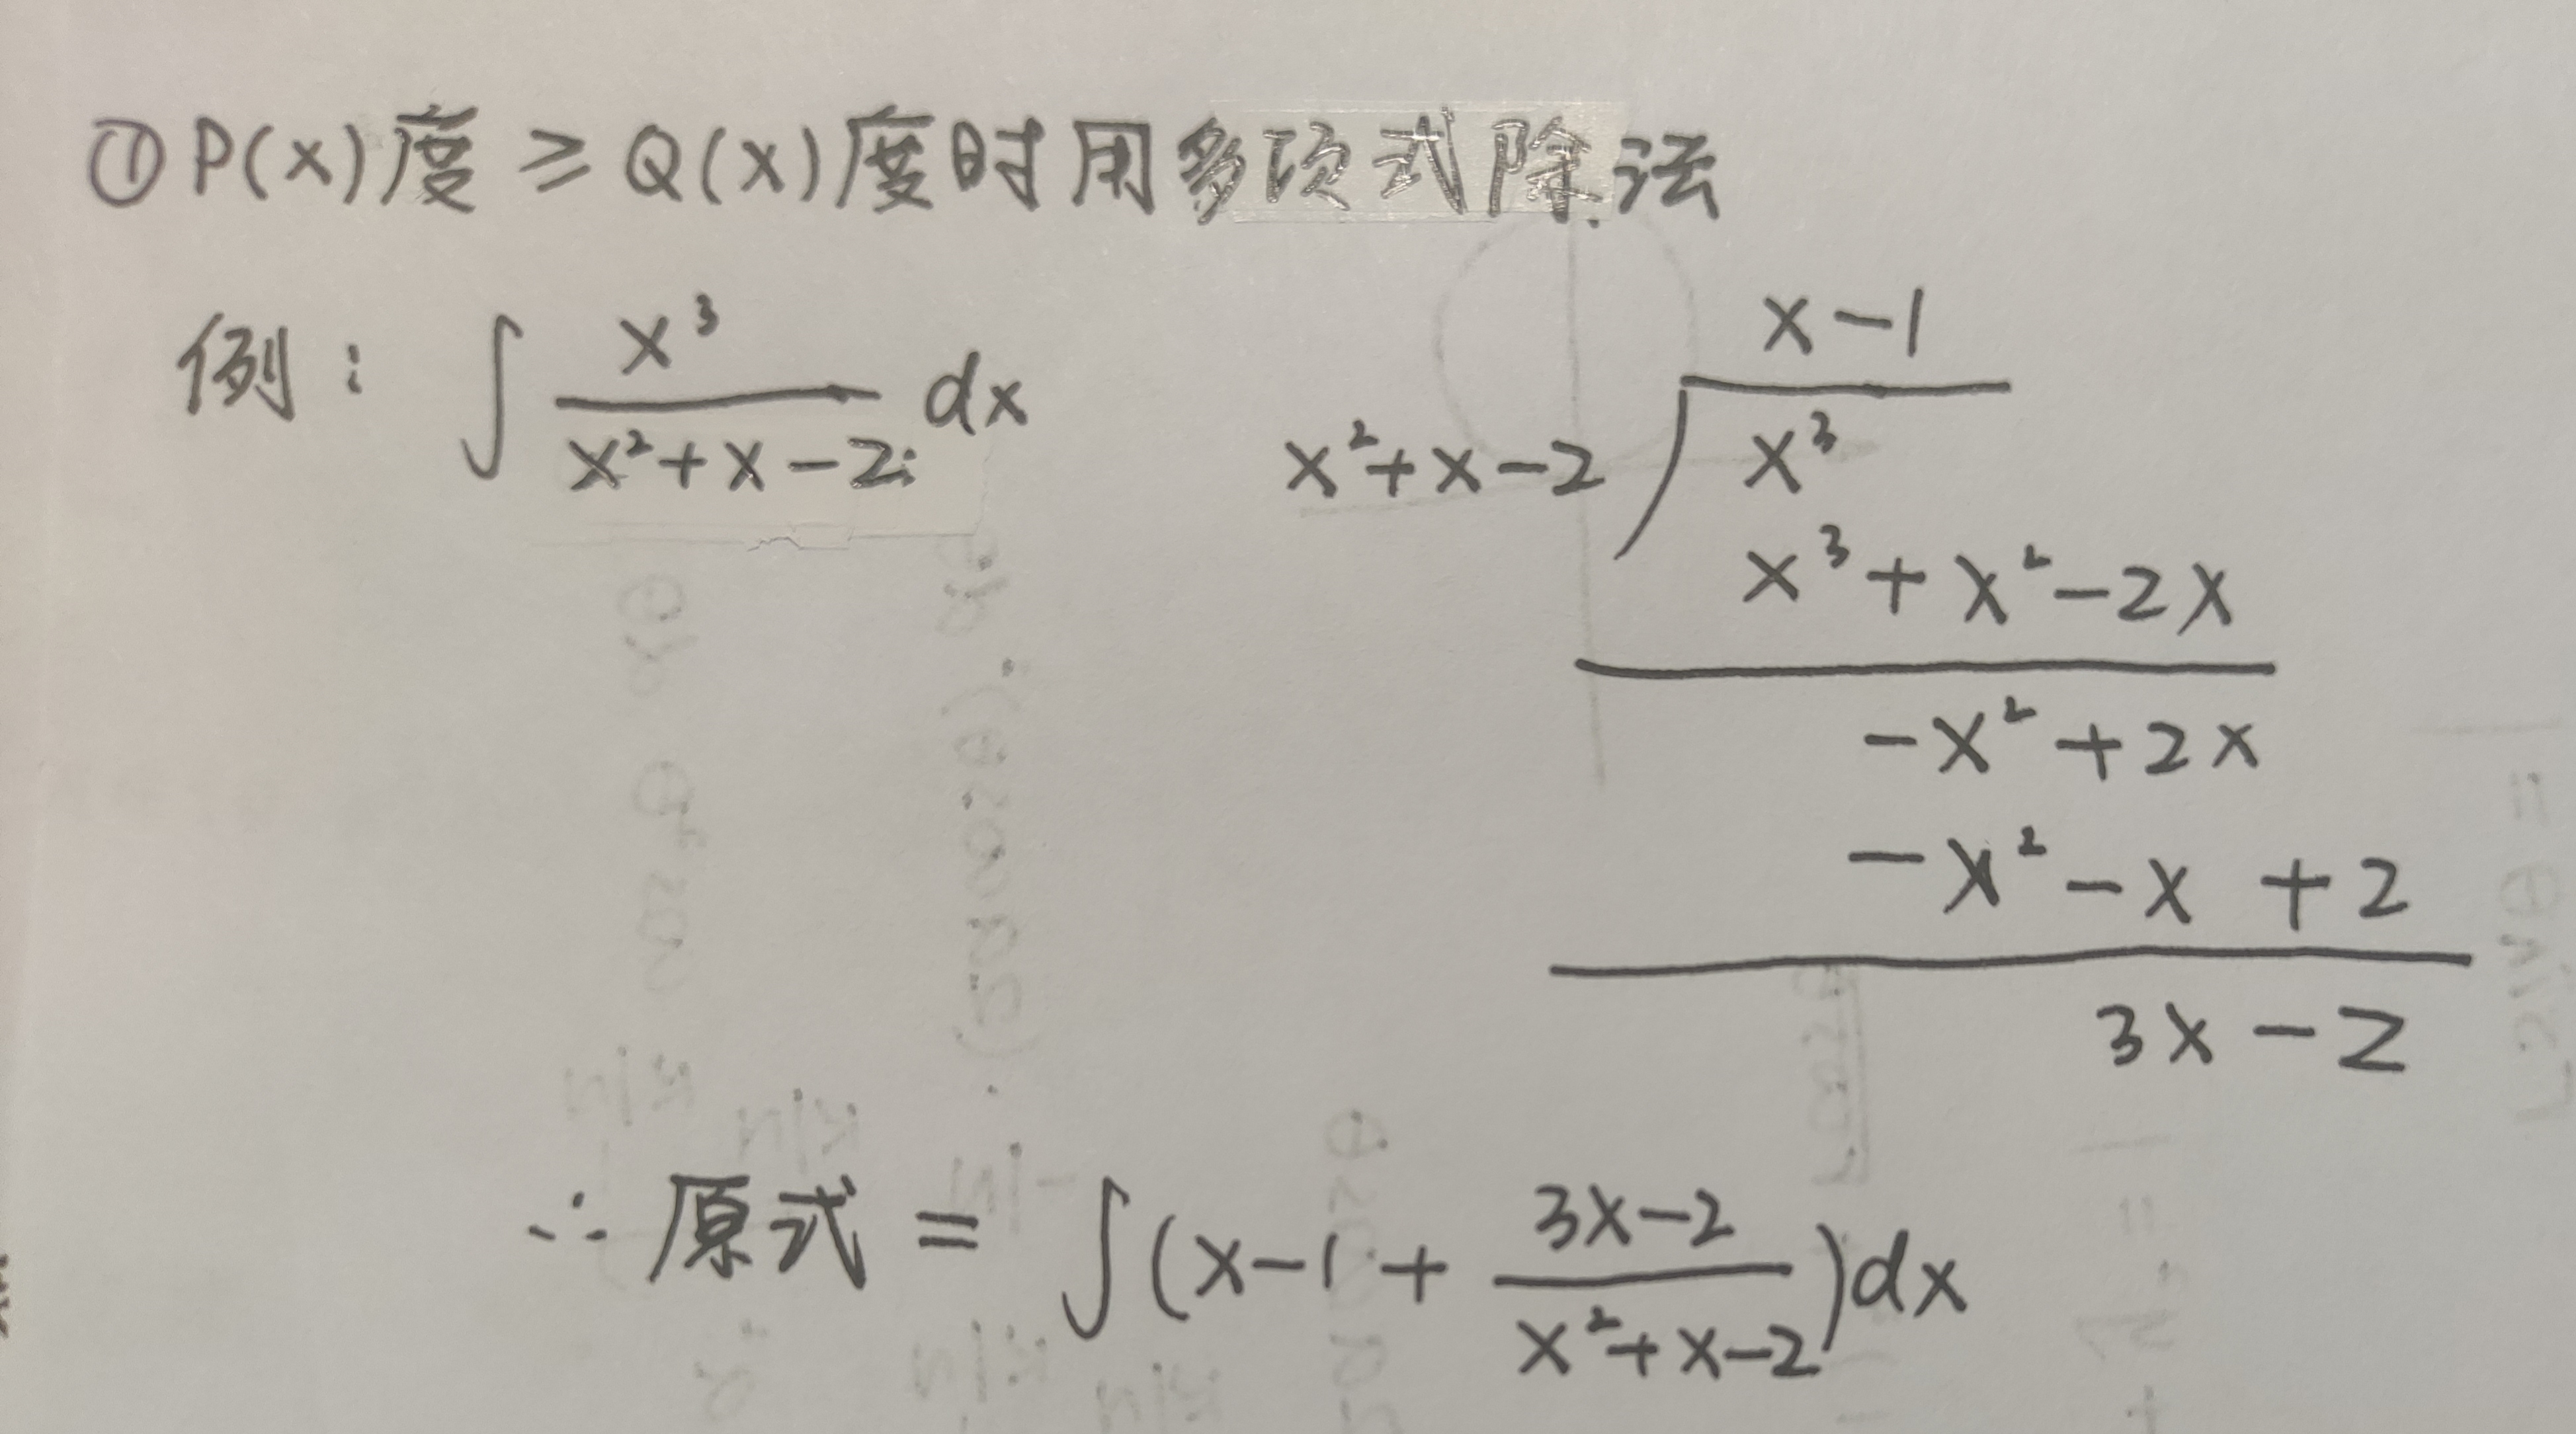 ①P(x)度≥Q(x)度时用多项式除法
例: ∫ x³/(x²+x-2) dx
x-1
x²+x-2 ) x³
x³+x²-2x
-x²+2x
-x²-x+2
3x-2
∴原式 = ∫(x-1+(3x-2)/(x²+x-2))dx